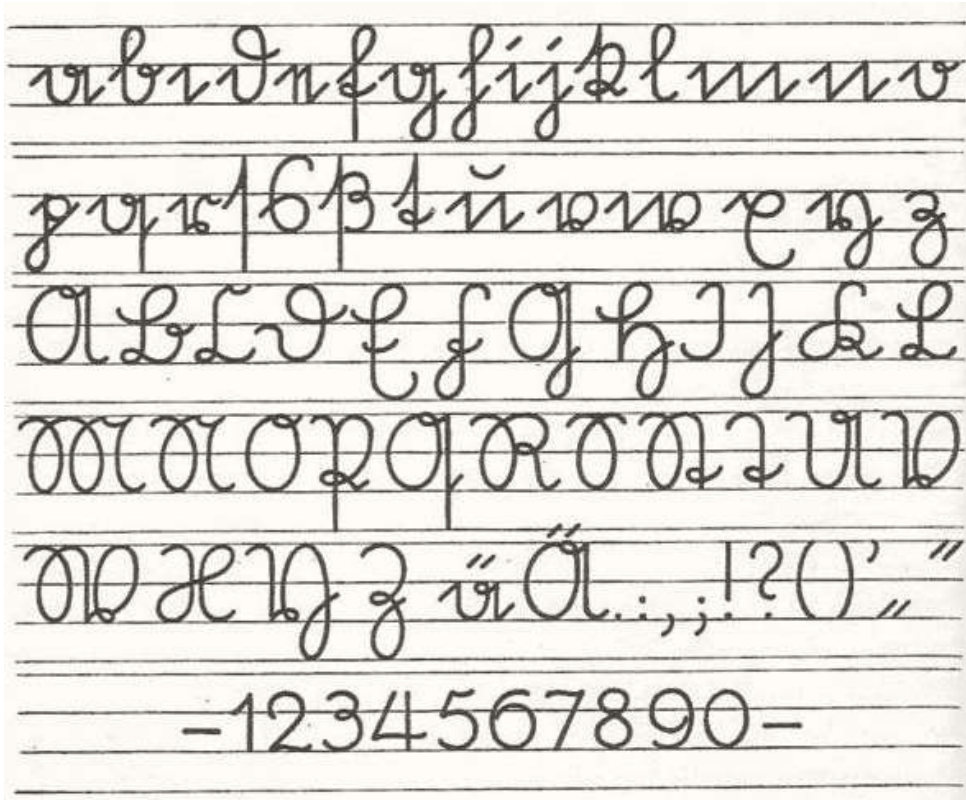 a b c d e f g h i j k l m n o
p q r ſ s ß t ŭ v w x y z
A B C D E F G H I J K L
M N O P Q R S St T U V
W X Y Z ä Ä . : , ; ! ? ( ) ’ „ “
-1234567890-